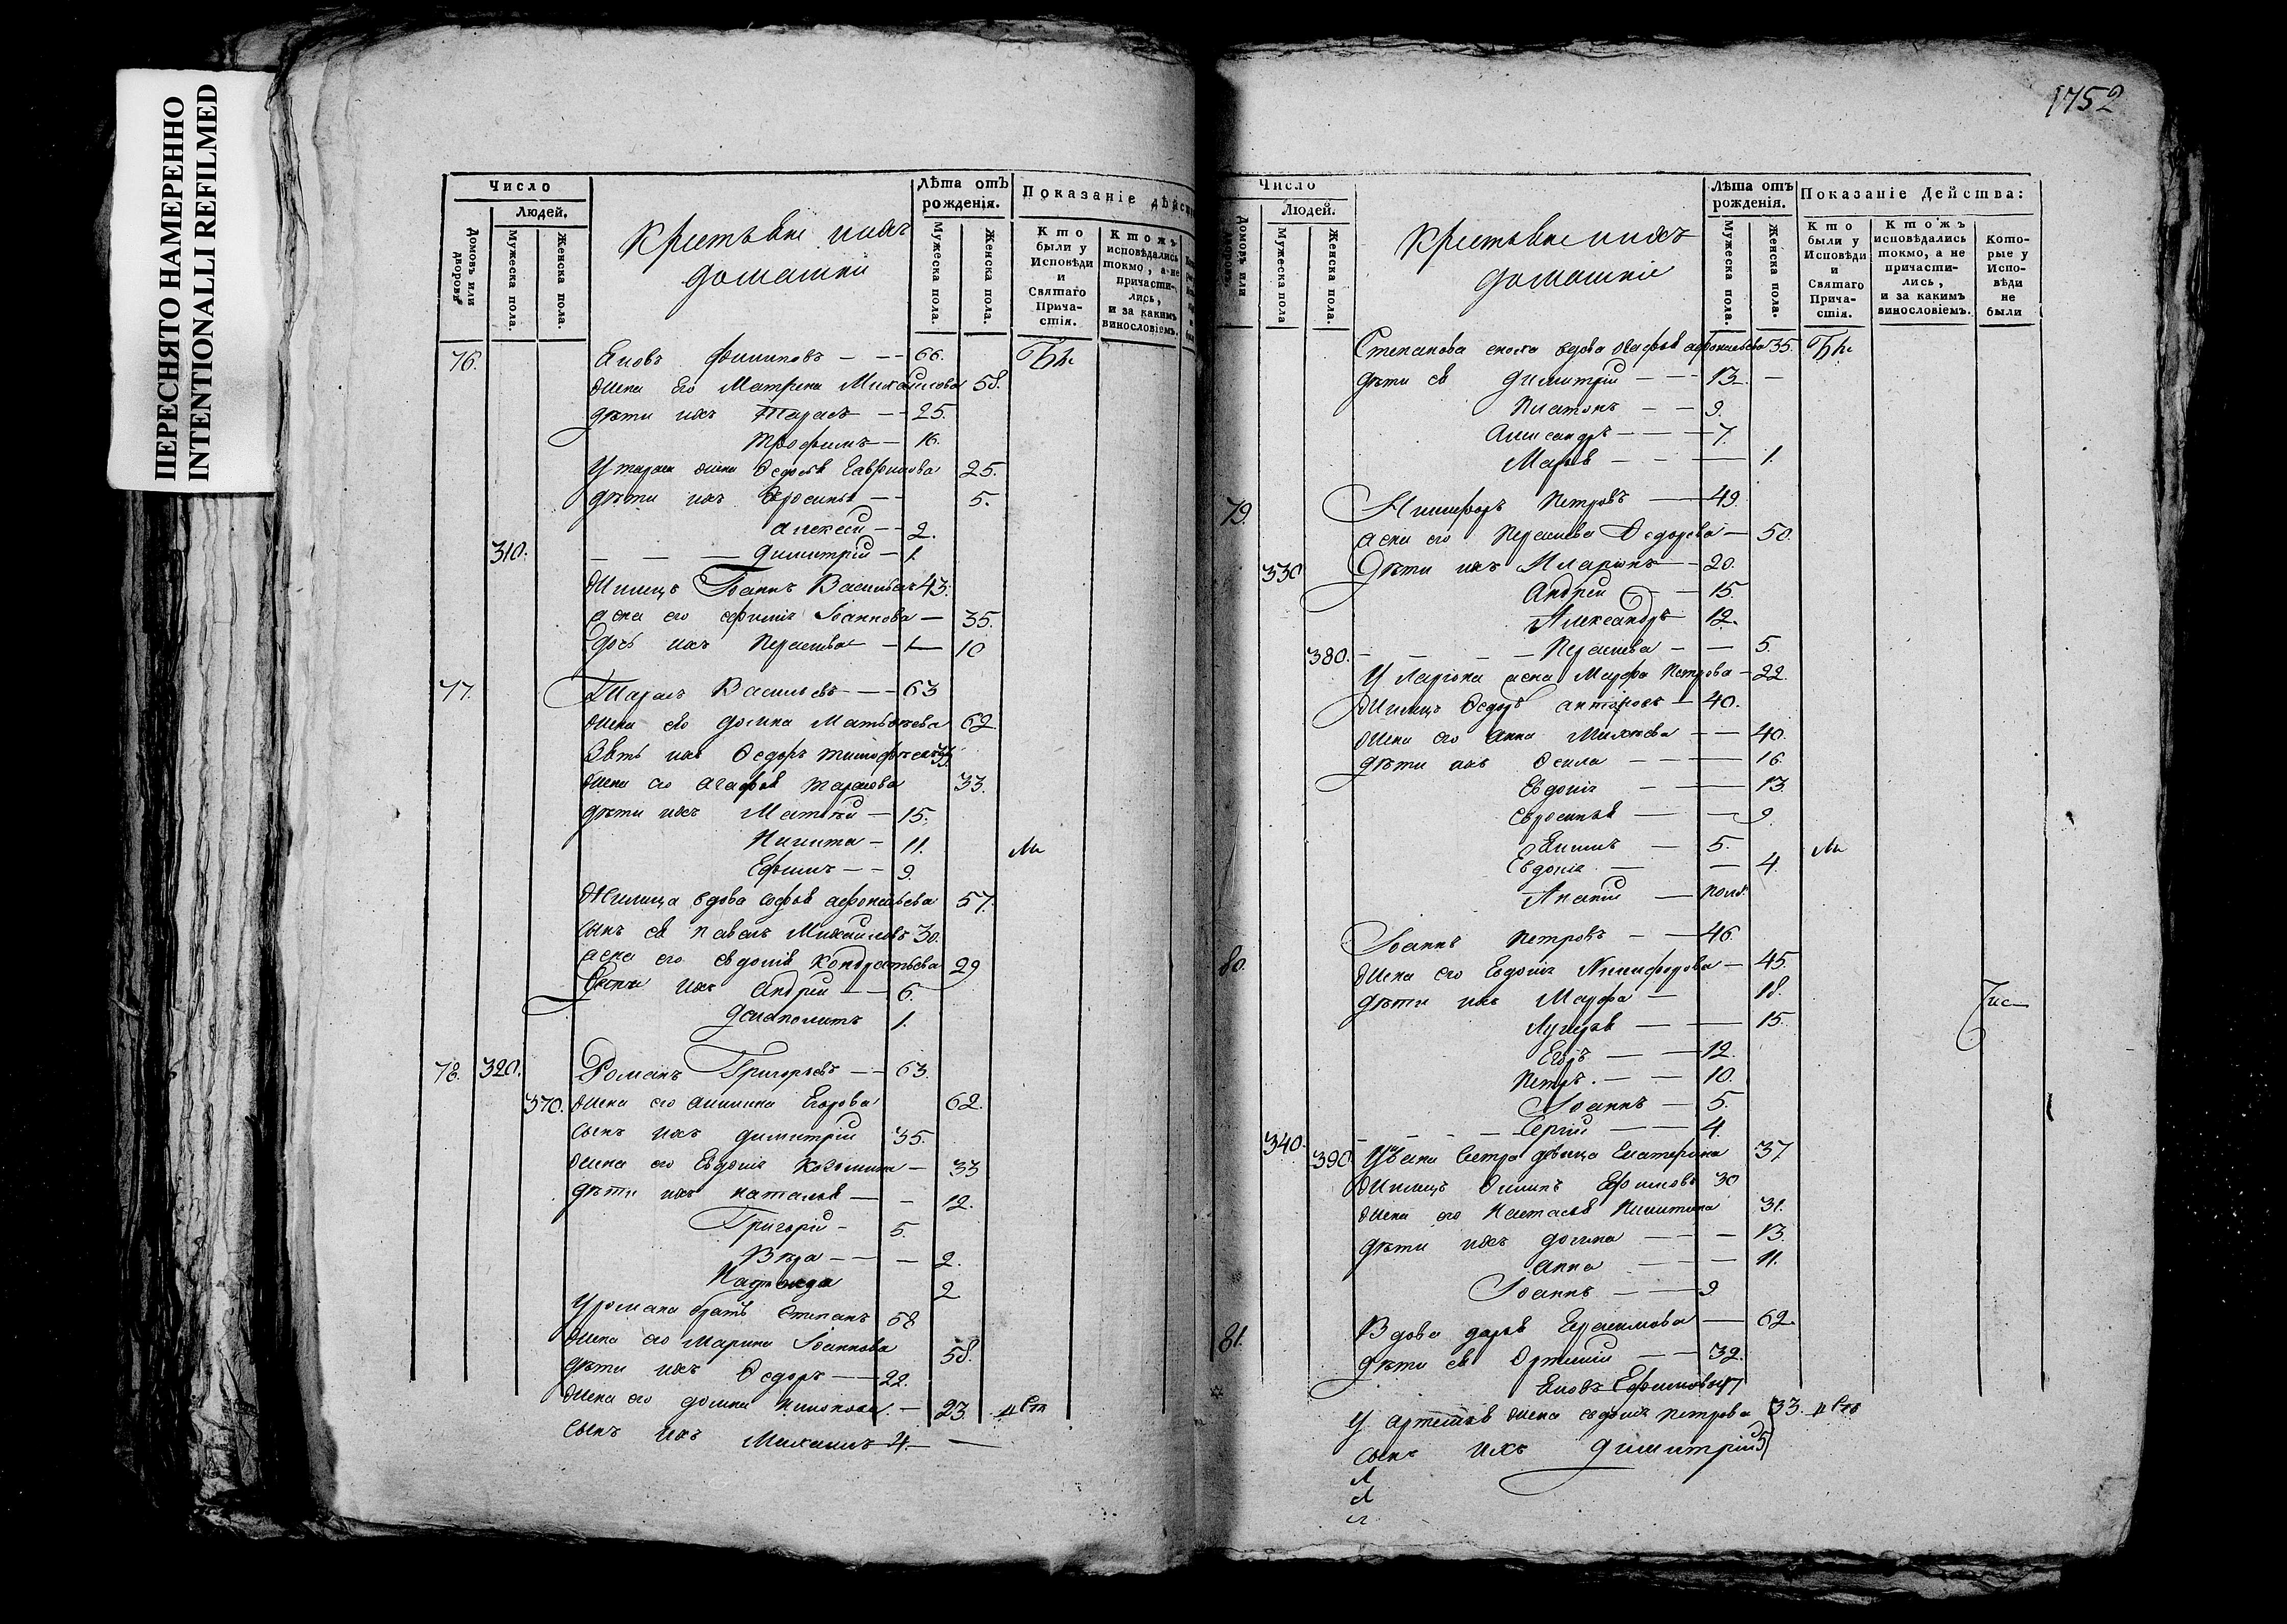 ПЕРЕСНЯТО НАМЕРЕННО
INTENTIONALLI REFILMED
Число
Людей.
Домовъ или дворовъ
Мужеска пола.
Женска пола.
Крестьяне ихъ
домашніи
Лѣта отъ рожденія.
Мужеска пола.
Женска пола.
Показаніе дѣйс
Кто были у Исповѣди и Святаго Причастія.
Ктожъ исповѣдались токмо, а не причастились, и за какимъ винословіемъ.
76. Яковъ Филиповъ — — 66. Бы
жена его Матрена Михайлова 58.
дѣти ихъ Тарасъ — — 25.
Трофимъ — 16.
У тараса жена Ѳедосья Гаврилова 25.
дѣти ихъ Евросинья — — 5.
Алексеи — — 2.
310. — — — Димитріи — 1.
Жилецъ Іоаннъ Васильевъ 43.
жена его Іоаннова — 35.
дочь ихъ Параскева — 10
77. Тарасъ Васильевъ — — 63
жена его домна Матвѣева 62
Зять ихъ Ѳедоръ тимофѣевъ
жена его агафья тарасова 33.
дѣти ихъ Матвѣи — 15.
Никита — 11. ли
Ефимъ — — 9.
Жилица вдова софья афонасьева 57.
сынъ ея павелъ Михаиловъ 30.
жена его евдокія Кондратьева 29
дѣти ихъ Андреи — — 6.
1.
78. 320. Романъ Григорьевъ — — 63.
370. жена его акилина Егорова 62.
сынъ ихъ димитріи 35.
жена его Евдокія Козьмина — 33
дѣти ихъ наталья — — 12.
Григоріи — 5.
Вѣра — — — 2.
Надежда 2
У романа братъ Степанъ 58
жена его Марина Іоаннова 58.
дѣти ихъ Ѳедоръ — — 22.
жена его домна — 23.
сынъ ихъ Михаилъ — 4. —
1752
Число
Людей.
Домовъ или дворовъ
Мужеска пола
Женска пола.
Крестьяне ихъ
домашніе
Лѣта отъ рожденія.
Мужеска пола.
Женска пола.
Показаніе Действа:
Кто были у Исповѣди и Святаго Причастія.
Ктожъ исповѣдались токмо, а не причастились, и за какимъ винословіемъ.
Которые у Исповѣди не были
Степанова сноха вдова агафья афонасьева 35. Бы
дѣти ея Димитріи — — 13. —
Платонъ — — 9.
Александръ — — — 7.
Марья — — — 1.
79. Никифоръ Петровъ — 49.
жена его Параскева Ѳедорова — 50.
330 дѣти ихъ Иларіонъ — — 20.
Андреи — — 15.
Александръ — 12.
380. — — — — Параскева — — 5.
У Ларіона жена Марфа Петрова — 22.
Жилецъ Ѳедоръ — 40.
жена его Анна Михѣева — — 40.
дѣти ихъ — — — 16.
Евдокія — — 13.
Евросинья — — 9.
Якимъ — 5. ли
Евдокія — — 4.
Ананій — полг.
80. Іоаннъ Петровъ — — 46.
жена его Евдокія Никифорова — 45.
дѣти ихъ Марфа — 18.
Лукерья — — 15.
Егоръ — — 12.
Петръ. — — 10.
Іоаннъ — 5.
340. — — — — Сергіи — — 4.
390 Ивана сестра дѣвица Екатерина 37
Жилецъ Филипъ Ефимовъ 30
жена его Настасья Никитина 31.
дѣти ихъ домна — — — 13.
анна — — — 11.
Іоаннъ — — 9
81. Вдова дарья Герасимова — 62.
дѣти ея Артеміи — — 32.
Яковъ Ефимовъ 47
У артемья жена евдокія петрова 33.
сынъ ихъ Димитріи 5